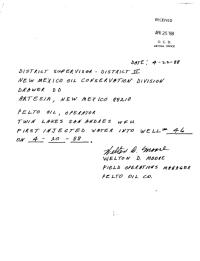 RECEIVED
APR 25 '88
O. C. D.
ARTESIA, OFFICE
DATE: 4-22-88
DISTRICT SUPERVISOR - DISTRICT II
NEW MEXICO OIL CONSERVATION DIVISION
DRAWER DD
ARTESIA, NEW MEXICO 88210
PELTO OIL, OPERATOR
TWIN LAKES SAN ANDRES WFU
FIRST INJECTED WATER INTO WELL # 46
ON 4-20-88.
Welton D. Moore
WELTON D. MOORE
FIELD OPERATIONS MANAGER
PELTO OIL CO.